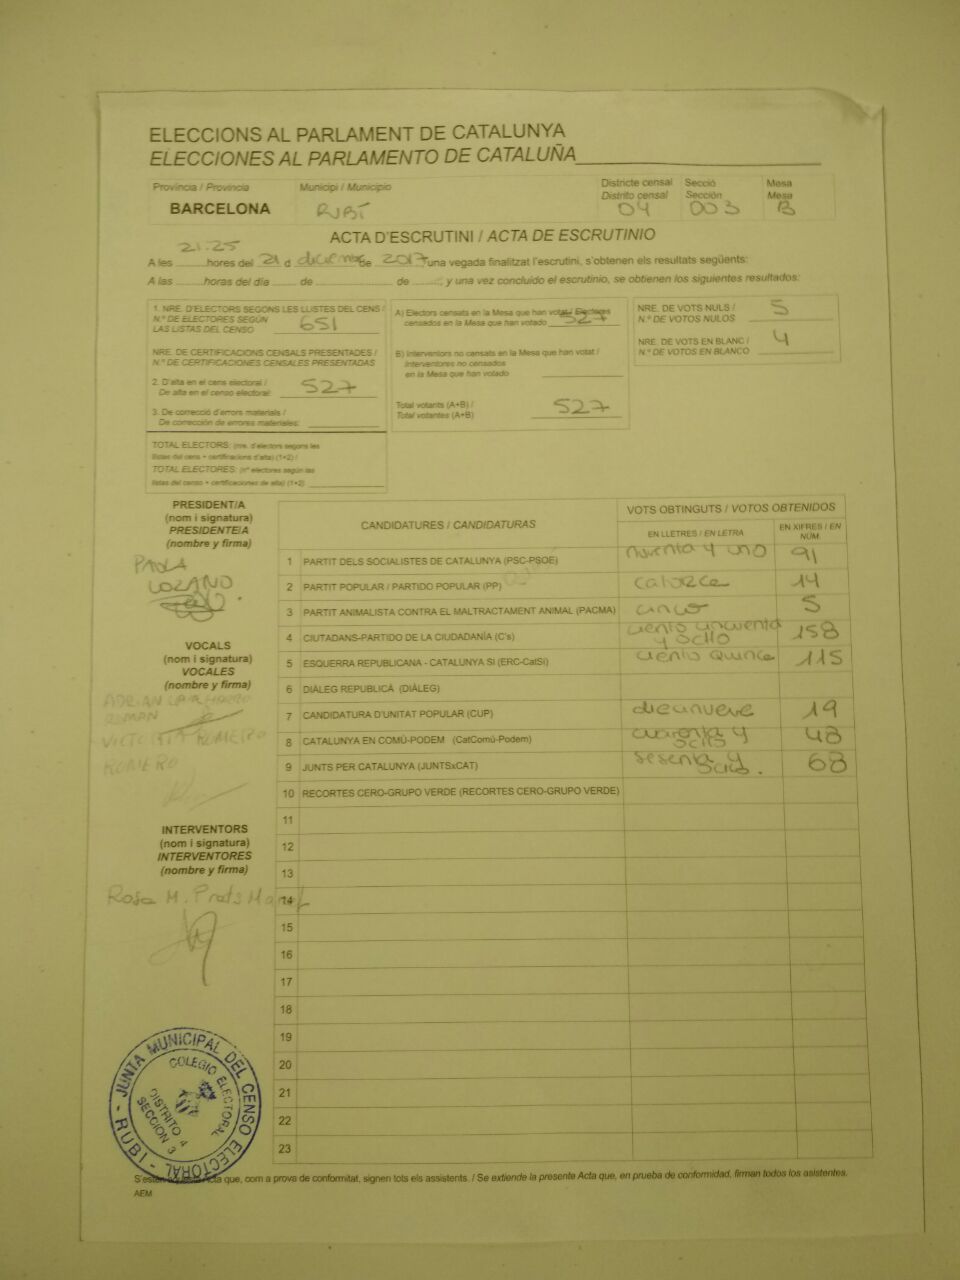 ELECCIONS AL PARLAMENT DE CATALUNYA
ELECCIONES AL PARLAMENTO DE CATALUÑA
Província / Provincia
BARCELONA
Municipi / Municipio
RUBÍ
Districte censal
Distrito censal
04
Secció
Sección
003
Mesa
Mesa
B
ACTA D'ESCRUTINI / ACTA DE ESCRUTINIO
21:25
A les ........ hores del 21 d diciembre de 2017 una vegada finalitzat l'escrutini, s'obtenen els resultats següents:
A las ........ horas del día ..... de ............ de ......, y una vez concluido el escrutinio, se obtienen los siguientes resultados:
1. NRE. D'ELECTORS SEGONS LES LLISTES DEL CENS /
N.º DE ELECTORES SEGÚN
LAS LISTAS DEL CENSO
651
NRE. DE CERTIFICACIONS CENSALS PRESENTADES /
N.º DE CERTIFICACIONES CENSALES PRESENTADAS
2. D'alta en el cens electoral /
De alta en el censo electoral:
527
3. De correcció d'errors materials /
De corrección de errores materiales:
TOTAL ELECTORS: (nre. d'electors segons les
llistes del cens + certificacions d'alta) (1+2) /
TOTAL ELECTORES: (nº electores según las
listas del censo + certificaciones de alta) (1+2)
A) Electors censats en la Mesa que han votat / Electores
censados en la Mesa que han votado
527
B) Interventors no censats en la Mesa que han votat /
Interventores no censados
en la Mesa que han votado
Total votants (A+B) /
Total votantes (A+B)
527
NRE. DE VOTS NULS /
N.º DE VOTOS NULOS
5
NRE. DE VOTS EN BLANC /
N.º DE VOTOS EN BLANCO
4
PRESIDENT/A
(nom i signatura)
PRESIDENTE/A
(nombre y firma)
PAOLA
LOZANO
VOCALS
(nom i signatura)
VOCALES
(nombre y firma)
ADRIAN
ROMAN
VICTORIA ROMERO
ROMERO
INTERVENTORS
(nom i signatura)
INTERVENTORES
(nombre y firma)
Rosa M. Prats
CANDIDATURES / CANDIDATURAS
VOTS OBTINGUTS / VOTOS OBTENIDOS
EN LLETRES / EN LETRA
EN XIFRES / EN NÚM.
1 PARTIT DELS SOCIALISTES DE CATALUNYA (PSC-PSOE) noventa y uno 91
2 PARTIT POPULAR / PARTIDO POPULAR (PP) catorce 14
3 PARTIT ANIMALISTA CONTRA EL MALTRACTAMENT ANIMAL (PACMA) cinco 5
4 CIUTADANS-PARTIDO DE LA CIUDADANÍA (C's) ciento cincuenta y ocho 158
5 ESQUERRA REPUBLICANA - CATALUNYA SÍ (ERC-CatSí) ciento quince 115
6 DIÀLEG REPUBLICÀ (DIÀLEG)
7 CANDIDATURA D'UNITAT POPULAR (CUP) diecinueve 19
8 CATALUNYA EN COMÚ-PODEM (CatComú-Podem) cuarenta y ocho 48
9 JUNTS PER CATALUNYA (JUNTSxCAT) sesenta y ocho. 68
10 RECORTES CERO-GRUPO VERDE (RECORTES CERO-GRUPO VERDE)
11
12
13
14
15
16
17
18
19
20
21
22
23
JUNTA MUNICIPAL DEL CENSO ELECTORAL - RUBI -
COLEGIO ELECTORAL
DISTRITO 4
SECCION 3
S'estén aquesta Acta que, com a prova de conformitat, signen tots els assistents. / Se extiende la presente Acta que, en prueba de conformidad, firman todos los asistentes.
AEM